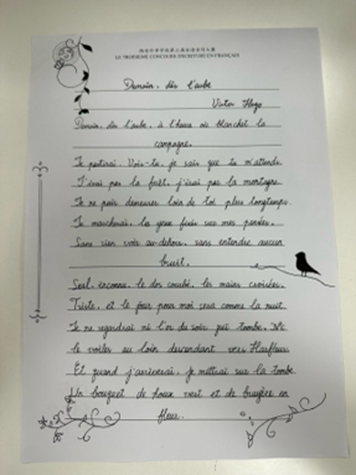 LE TROISIEME CONCOURS D'ECRITURE EN FRANÇAIS
Demain, dès l'aube
Victor Hugo
Demain, dès l'aube, à l'heure où blanchit la
campagne,
Je partirai. Vois-tu, je sais que tu m'attends.
J'irai par la forêt, j'irai par la montagne.
Je ne puis demeurer loin de toi plus longtemps.
Je marcherai, les yeux fixés sur mes pensées,
Sans rien voir au-dehors, sans entendre aucun
bruit,
Seul, inconnu, le dos courbé, les mains croisées,
Triste, et le jour pour moi sera comme la nuit.
Je ne regarderai ni l'or du soir qui tombe, Ni
les voiles au loin descendant vers Harfleur,
Et quand j'arriverai, je mettrai sur ta tombe
Un bouquet de houx vert et de bruyère en
fleur.